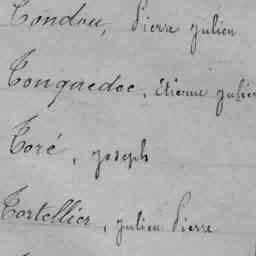 Condou, Pierre Julien
Conguedoc, Etienne Julien
Coré, Joseph
Cortellier, Julien Pierre